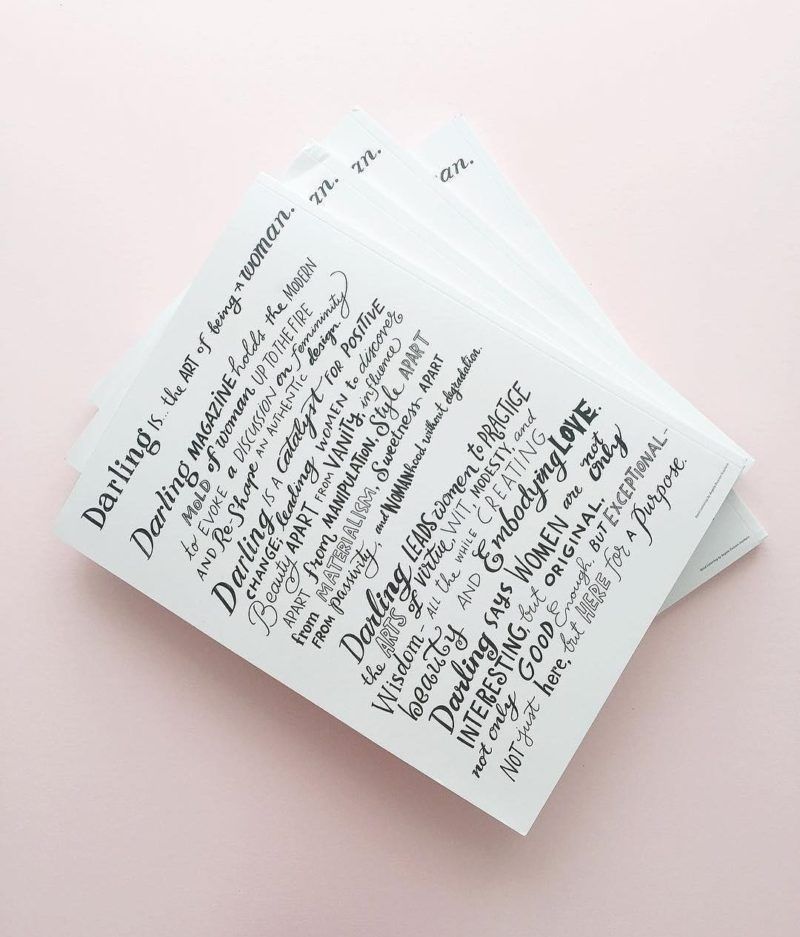 Darling IS... the ART of being A woman.
Darling MAGAZINE holds the MODERN
MOLD of woman UP TO THE FIRE
to EVOKE a DISCUSSION on femininity
AND Re-Shape AN AUTHENTIC design.
Darling IS A catalyst FOR POSITIVE
CHANGE, leading WOMEN to discover
Beauty APART FROM VANITY, influence
APART from MANIPULATION, Style APART
from MATERIALISM, Sweetness APART
FROM passivity, and WOMANhood without degradation.
Darling LEADS women to PRACTICE
the ARTS of virtue, WIT, MODESTY, and
Wisdom- ALL the WHILE CREATING
beauty AND Embodying LOVE.
Darling SAYS WOMEN are not only
INTERESTING, but ORIGINAL,
not only GOOD Enough, but EXCEPTIONAL-
NOT just here, but HERE for a Purpose.
an.
n.
an.